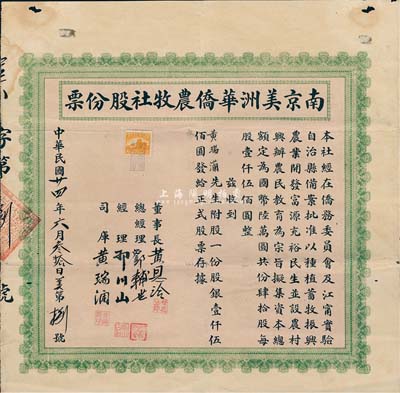 南京美洲華僑農牧社股份票
本社經在僑務委員會及江甯實驗
自治縣備案批准以種植蓄牧振興
農業開發富源充裕民生並設農村
興辦農民教育為宗旨擬集資本總
額定為國幣陸萬圓共份肆拾股每
股壹仟伍佰圓整
茲收到
黃瑞 先生附股一份股銀壹仟伍
佰圓發給正式股票存據
董事長黃
總經理鄧輔
經理鄺川山
司庫黃瑞
中華民國廿四年六月叁拾日 第捌號
字第
捌
號